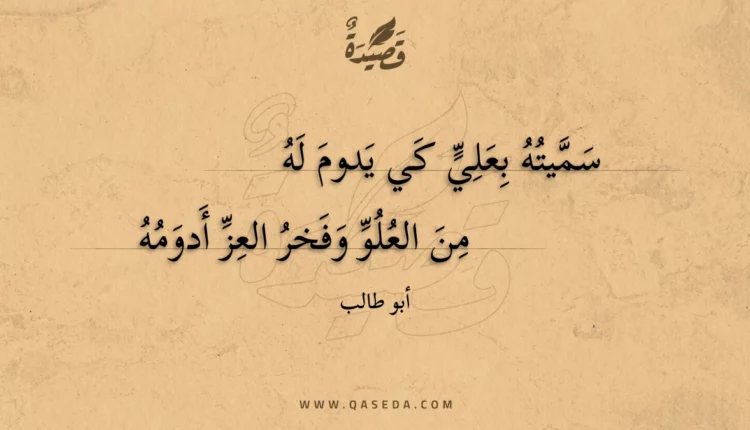 قَصِيدَةٌ
سَمَّيتُهُ بِعَلِيٍّ كَي يَدومَ لَهُ
مِنَ العُلُوِّ وَفَخرُ العِزِّ أَدوَمُهُ
أبو طالب
WWW.QASEDA.COM